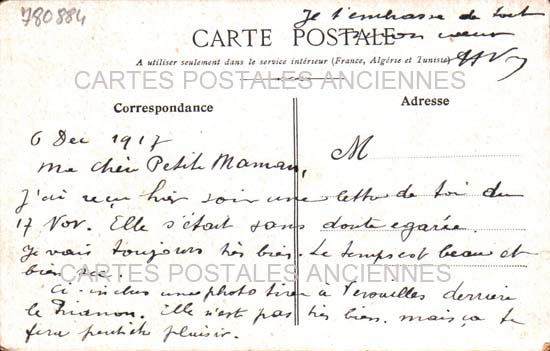 780884
Je t'embrasse de tout
mon coeur
CARTE POSTALE
A utiliser seulement dans le service intérieur (France, Algérie et Tunisie)
CARTES POSTALES ANCIENNES
Correspondance
Adresse
6 Dec 1917
M
Ma chère Petite Maman,
J'ai reçu hier soir une lettre de toi du
17 Nov. Elle s'était sans doute egarée.
Je vais toujours très bien. Le temps est beau et
bien sec.
CARTES POSTALES ANCIENNES
Ci-inclus une photo tirée à Versailles derrière
le Trianon. Elle n'est pas très bien, mais ça te
fera peut être plaisir.